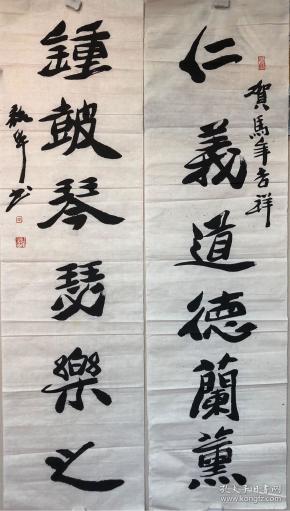 賀馬年吉祥
仁義道德蘭薰
鍾鼓琴瑟樂之
孔夫子旧书网